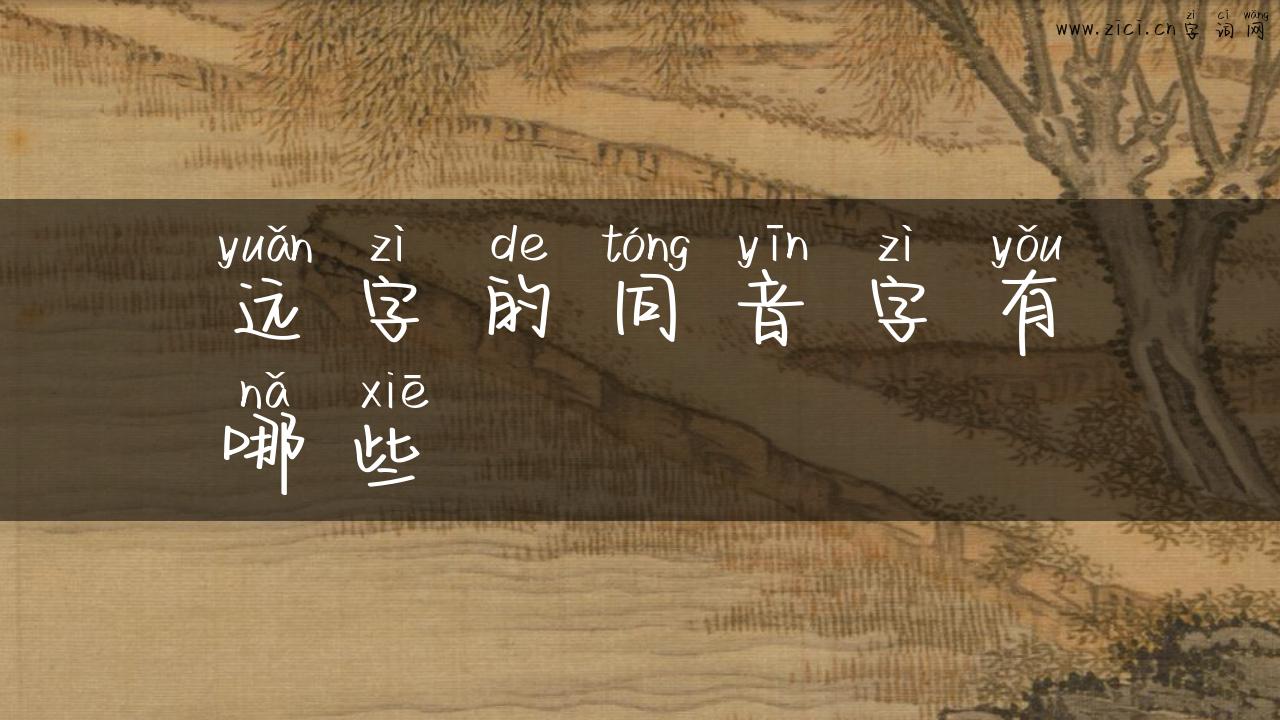 zì cí wǎng
www.zici.cn字词网
yuǎn zì de tóng yīn zì yǒu
远字的同音字有
nǎ xiē
哪些